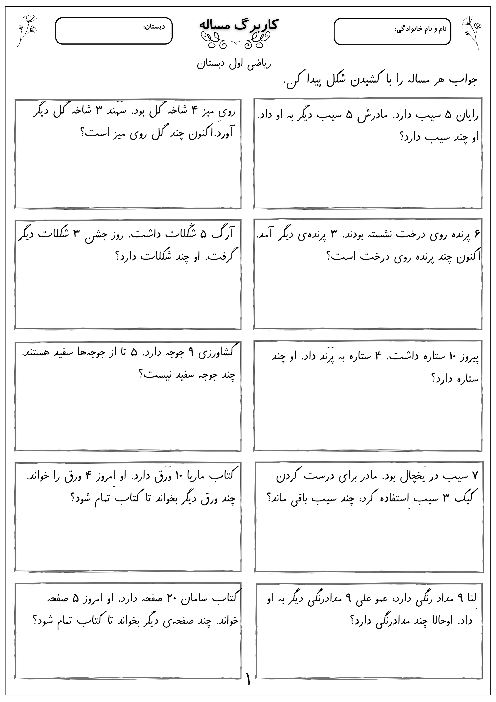 نام و نام خانوادگی:
کاربرگ مساله
دبستان:
ریاضی اول دبستان
جواب هر مساله را با کشیدن شکل پیدا کن.
رایان ۵ سیب دارد. مادرش ۵ سیب دیگر به او داد.
او چند سیب دارد؟
روی میز ۴ شاخه گل بود. سهند ۳ شاخه گل دیگر
آورد. اکنون چند گل روی میز است؟
۶ پرنده روی درخت نشسته بودند. ۳ پرنده‌ی دیگر آمد.
اکنون چند پرنده روی درخت است؟
آرگ ۵ شکلات داشت. روز جشن ۳ شکلات دیگر
گرفت. او چند شکلات دارد؟
پیروز ۱۰ ستاره داشت. ۴ ستاره به پرند داد. او چند
ستاره دارد؟
کشاورزی ۹ جوجه دارد. ۵ تا از جوجه‌ها سفید هستند.
چند جوجه سفید نیست؟
۷ سیب در یخچال بود. مادر برای درست کردن
کیک ۳ سیب استفاده کرد. چند سیب باقی ماند؟
کتاب ماریا ۱۰ ورق دارد. او امروز ۴ ورق را خواند.
چند ورق دیگر بخواند تا کتاب تمام شود؟
لنا ۹ مداد رنگی دارد. عمو علی ۹ مدادرنگی دیگر به او
داد. اوحالا چند مدادرنگی دارد؟
کتاب سامان ۲۰ صفحه دارد. او امروز ۵ صفحه
خواند. چند صفحه‌ی دیگر بخواند تا کتاب تمام شود؟
۱